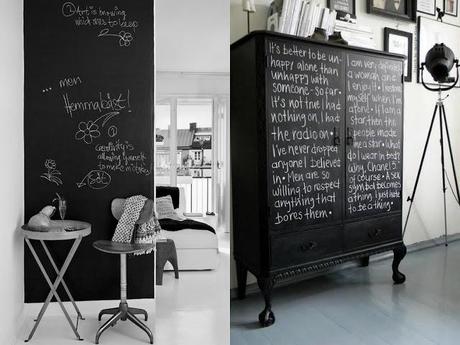 ① Art is knowing
which ones to keep
... mon
Hemma bäst!
② Creativity is
allowing yourself
to make mistakes
It's better to be un-
happy alone than
unhappy with
someone - so far •
It's not true I had
nothing on, I had
the radio on •
I've never dropped
anyone I believed
in • Men are so
willing to respect
anything that
bores them •
I am very definitely
a woman and I
enjoy it • I restore
myself when I'm
alone • If I am a
star then the
people made
me a star • What
do I wear in bed?
Why, Chanel 5
of course • A sex
symbol becomes
a thing, I just hate
to be a thing •